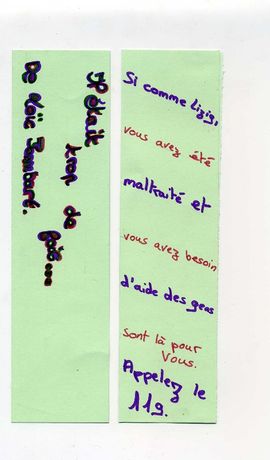 était de
De Loïc
Si comme Lizig,
vous avez été
maltraité et
vous avez besoin
d'aide des gens
sont là pour
Vous.
Appelez le
119.